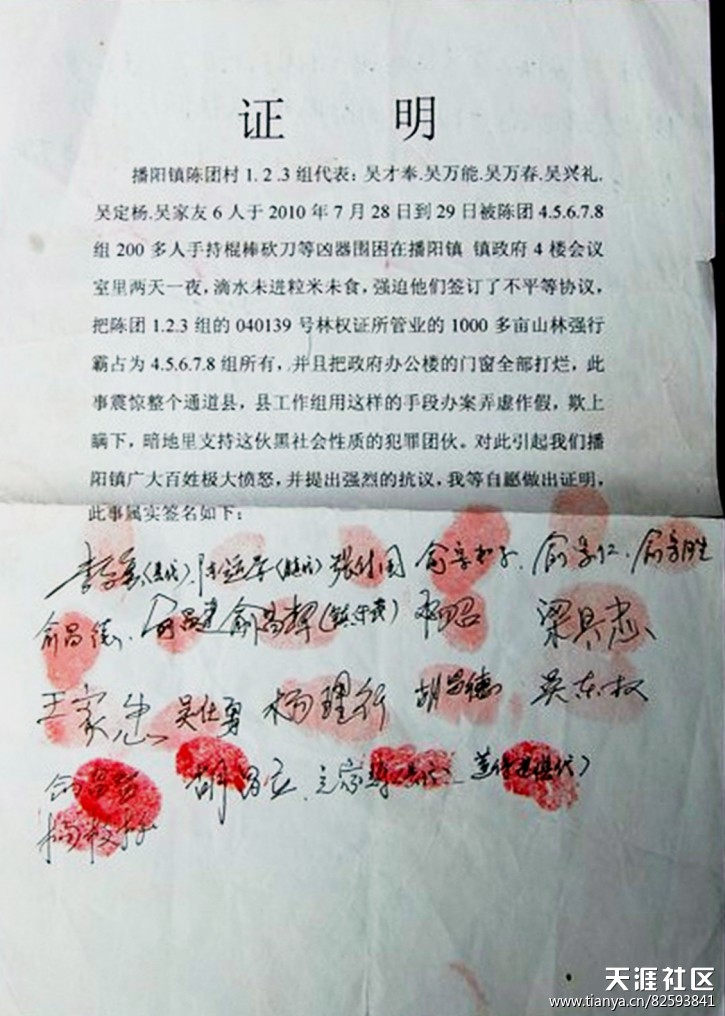 证 明
播阳镇陈团村1.2.3组代表：吴才奉.吴万能.吴万春.吴兴礼.
吴定杨.吴家友6人于2010年7月28日到29日被陈团4.5.6.7.8
组200多人手持棍棒砍刀等凶器围困在播阳镇 镇政府4楼会议
室里两天一夜，滴水未进粒米未食，强迫他们签订了不平等协议，
把陈团1.2.3组的040139号林权证所管业的1000多亩山林强行
霸占为4.5.6.7.8组所有，并且把政府办公楼的门窗全部打烂，此
事震惊整个通道县，县工作组用这样的手段办案弄虚作假，欺上
瞒下，暗地里支持这伙黑社会性质的犯罪团伙。对此引起我们播
阳镇广大百姓极大愤怒，并提出强烈的抗议，我等自愿做出证明，
此事属实签名如下：
俞昌德 俞昌辉 邓昭 梁具忠
王家忠 吴仕勇 杨理行 胡昌德 吴东权
天涯社区
www.tianya.cn/82593841